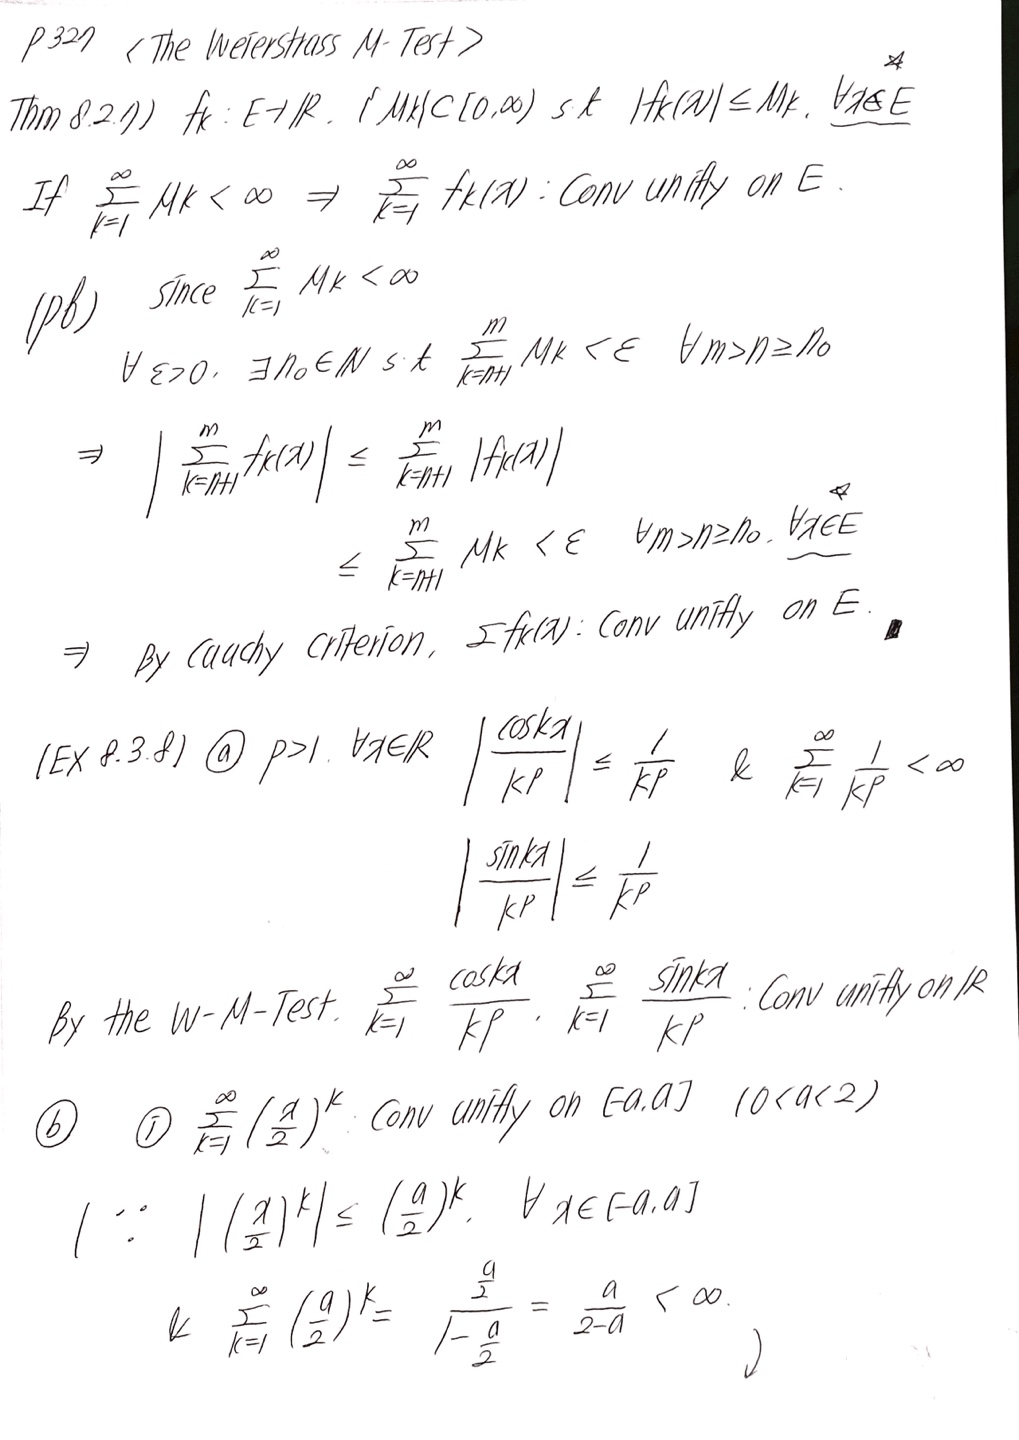 P327 <The Weierstrass M-Test>
Thm 8.2.7) fk : E→ℝ. {Mk}⊂[0,∞) s.t |fk(x)| ≤ Mk. ∀x∈E ☆
If ∞Σk=1 Mk < ∞ ⇒ ∞Σk=1 fk(x) : Conv unifly on E.
(pf) since ∞Σk=1 Mk < ∞
∀ε>0. ∃n₀∈ℕ s.t mΣk=n+1 Mk < ε ∀m>n≥n₀
⇒ | mΣk=n+1 fk(x) | ≤ mΣk=n+1 |fk(x)|
≤ mΣk=n+1 Mk < ε ∀m>n≥n₀. ∀x∈E ☆
⇒ By Cauchy Criterion, Σfk(x) : Conv unifly on E. ∎
(EX 8.3.8) ⓐ p>1. ∀x∈ℝ | coskx / k^p | ≤ 1/k^p & ∞Σk=1 1/k^p < ∞
| sinkx / k^p | ≤ 1/k^p
By the W-M-Test. ∞Σk=1 coskx / k^p . ∞Σk=1 sinkx / k^p : Conv unifly on ℝ
ⓑ ① ∞Σk=1 (x/2)^k. Conv unifly on [-a.a] (0<a<2)
(∵ |(x/2)^k| ≤ (a/2)^k. ∀x∈[-a.a]
& ∞Σk=1 (a/2)^k = (a/2) / (1-a/2) = a/(2-a) < ∞. )